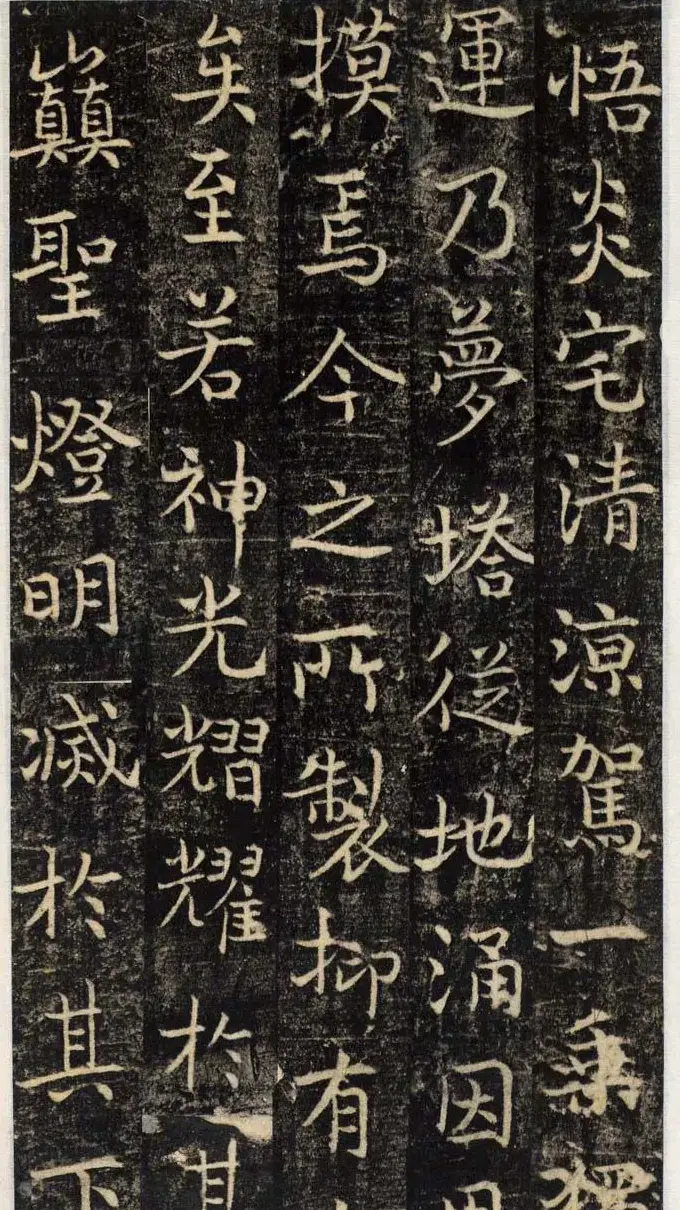 悟炎宅清涼駕一乘
運乃夢塔從地涌因
摸焉今之所製抑有
矣至若神光熠耀於其
巔聖燈明滅於其下